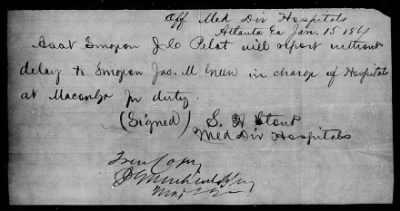 Off Med Dir Hospitals
Atlanta Ga Jan. 15 1864
Asst Surgeon J. C Pelot will report without
delay to Surgeon Jas. M Green in charge of Hospitals
at Macon Ga for duty.
(Signed) S. H Stout
Med Dir Hospitals
True Copy